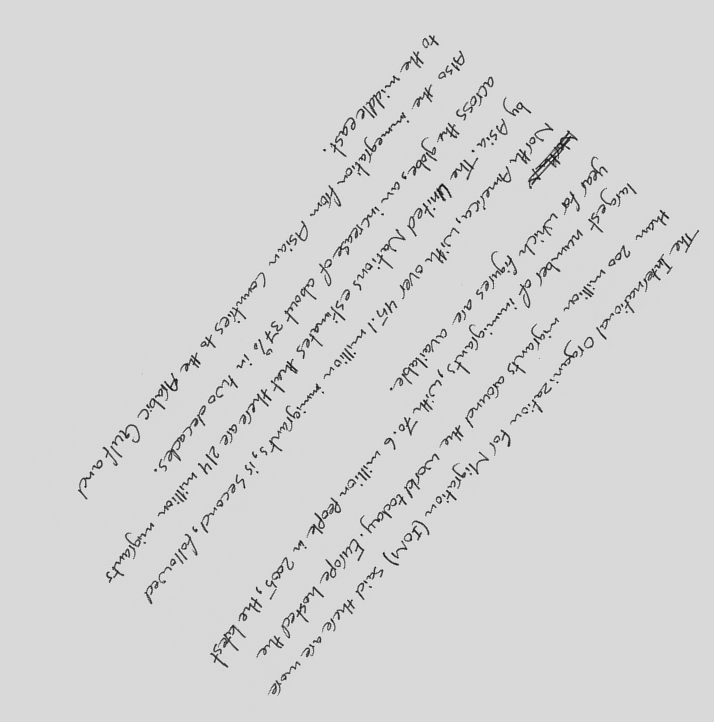 The International Organization for Migration (IOM) said there are more
than 200 million migrants around the world today. Europe hosted the
largest number of immigrants, with 70.6 million people in 2005, the latest
year for which figures are available.
North America, with over 45.1 million immigrants, is second, followed
by Asia. The United Nations estimates that there are 214 million migrants
across the globe, an increase of about 37% in two decades.
Also the immegration from Asian countries to the Arabic Gulf and
to the middle east.